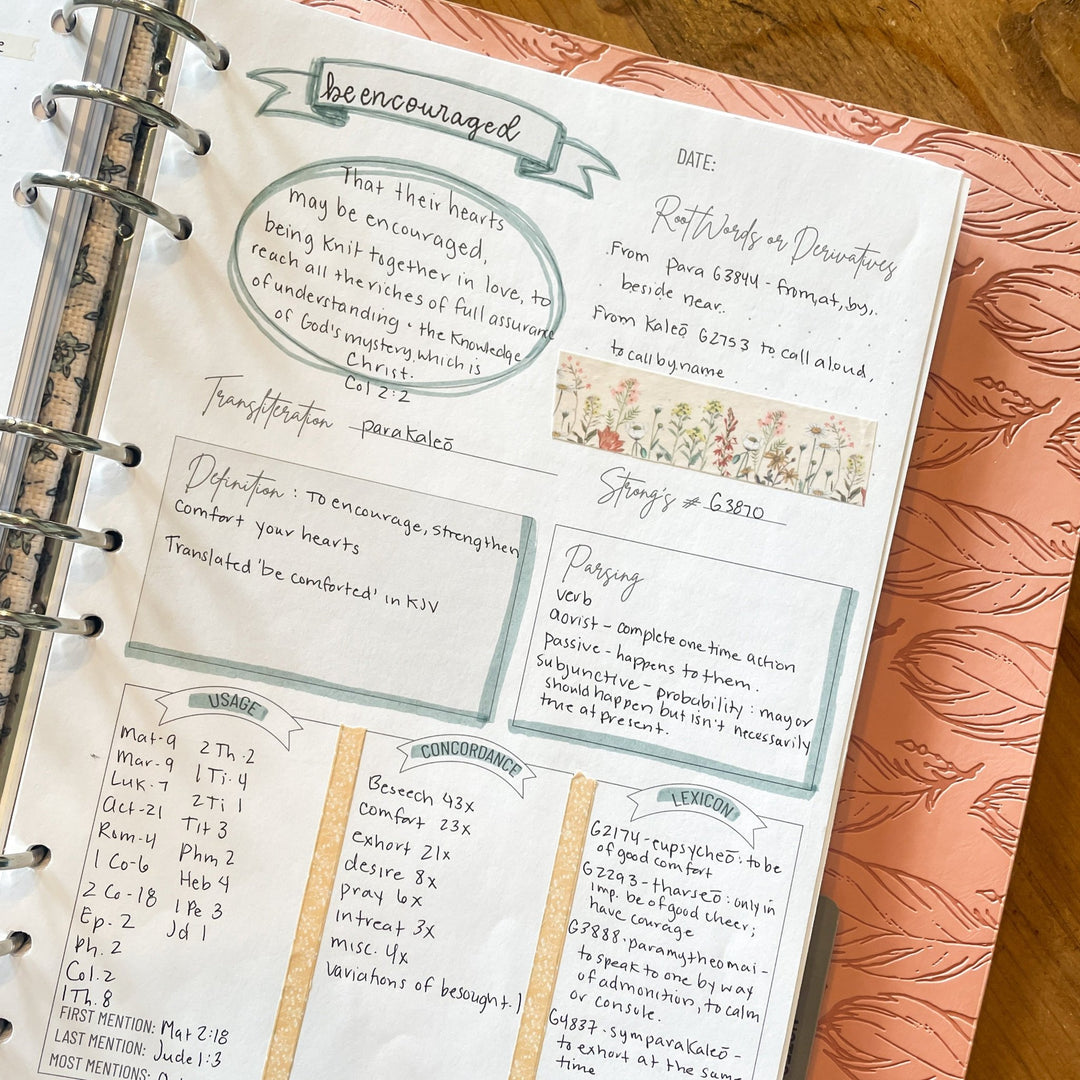 be encouraged
DATE:
That their hearts
may be encouraged,
being knit together in love, to
reach all the riches of full assurance
of understanding · the knowledge
of God's mystery, which is
Christ.
Col 2:2
Root Words or Derivatives
From para G3844 - from, at, by,
beside near.
From Kaleō G2753 to call aloud,
to call by name
Transliteration parakaleō
Strong's # G3870
Definition: To encourage, strengthen
comfort your hearts
Translated 'be comforted' in KJV
Parsing
verb
aorist - complete one time action
passive - happens to them.
Subjunctive - probability: may or
should happen but isn't necessarily
true at present.
USAGE
Mat-9
Mar-9
Luk-7
Act-21
Rom-4
1 Co-6
2 Co-18
Ep. 2
Ph. 2
Col. 2
1 Th. 8
2 Th. 2
1 Ti. 4
2 Ti 1
Tit 3
Phm 2
Heb 4
1 Pe 3
Jd 1
FIRST MENTION: Mat 2:18
LAST MENTION: Jude 1:3
MOST MENTIONS:
CONCORDANCE
Beseech 43x
comfort 23x
exhort 21x
desire 8x
pray 6x
intreat 3x
misc. 4x
variations of besought. 1
LEXICON
G2174 - eupsycheō: to be
of good comfort
G2293 - tharseō: only in
imp. be of good cheer;
have courage
G3888 · paramytheomai -
to speak to one by way
of admonition, to calm
or console.
G4837 · symparakaleō -
to exhort at the same
time